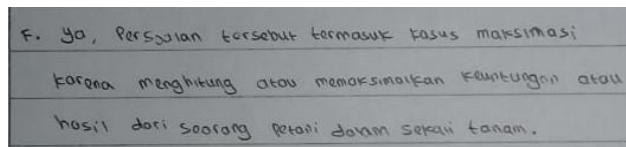 F. Ya, Persoalan tersebut termasuk kasus maksimasi
karena menghitung atau memaksimalkan keuntungan atau
hasil dari seorang petani dalam sekali tanam.